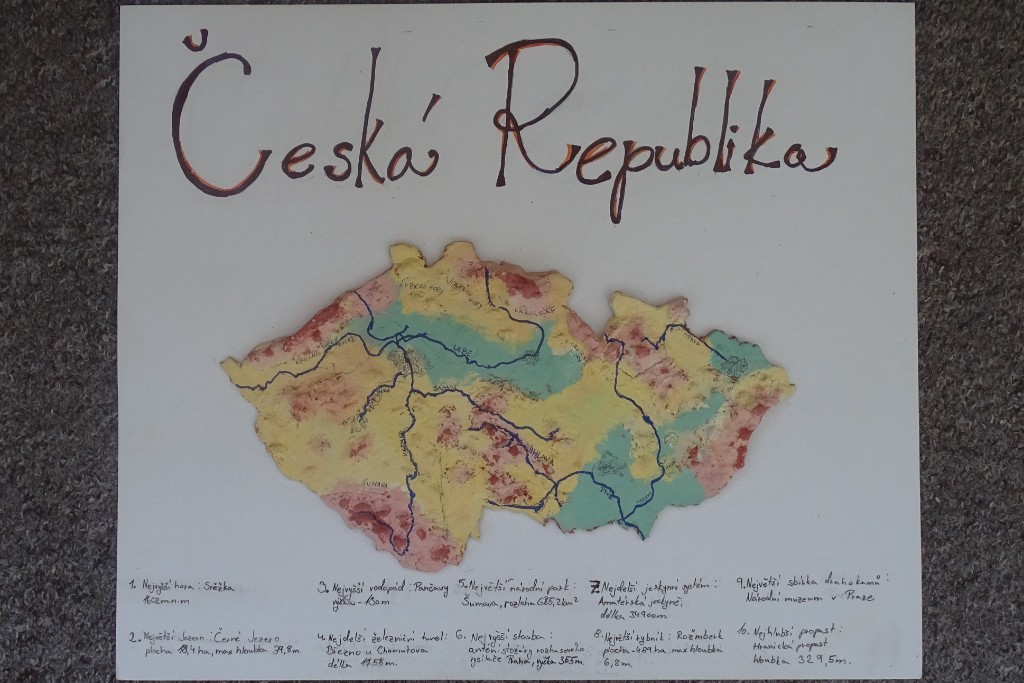 Česká Republika
LABE
ŠUMAVA
JIHLAVA
1. Nejvyšší hora: Sněžka
1602 m n. m
2. Největší Jezero: Černé Jezero
plocha 18,4 ha, max hloubka 39,8 m.
3. Nejvyšší vodopád: Pančavy
výška - 130 m
4. Nejdelší železniční tunel:
Březno u Chomutova
délka 1758 m.
5. Největší národní park:
Šumava, rozloha 685,2 km²
6. Nejvyšší stavba:
anténí stožáry rozhlasového
vysílače Praha, výška 355 m.
7. Nejdelší jeskynní systém:
Amatérská jeskyně,
délka 34900 m
8. Největší rybník: Rožmberk
plocha - 489 ha, max hloubka
6,2 m.
9. Největší sbírka drahokamů:
Národní muzeum v Praze
10. Nejhlubší propast:
Hranická propast
hloubka 329,5 m.